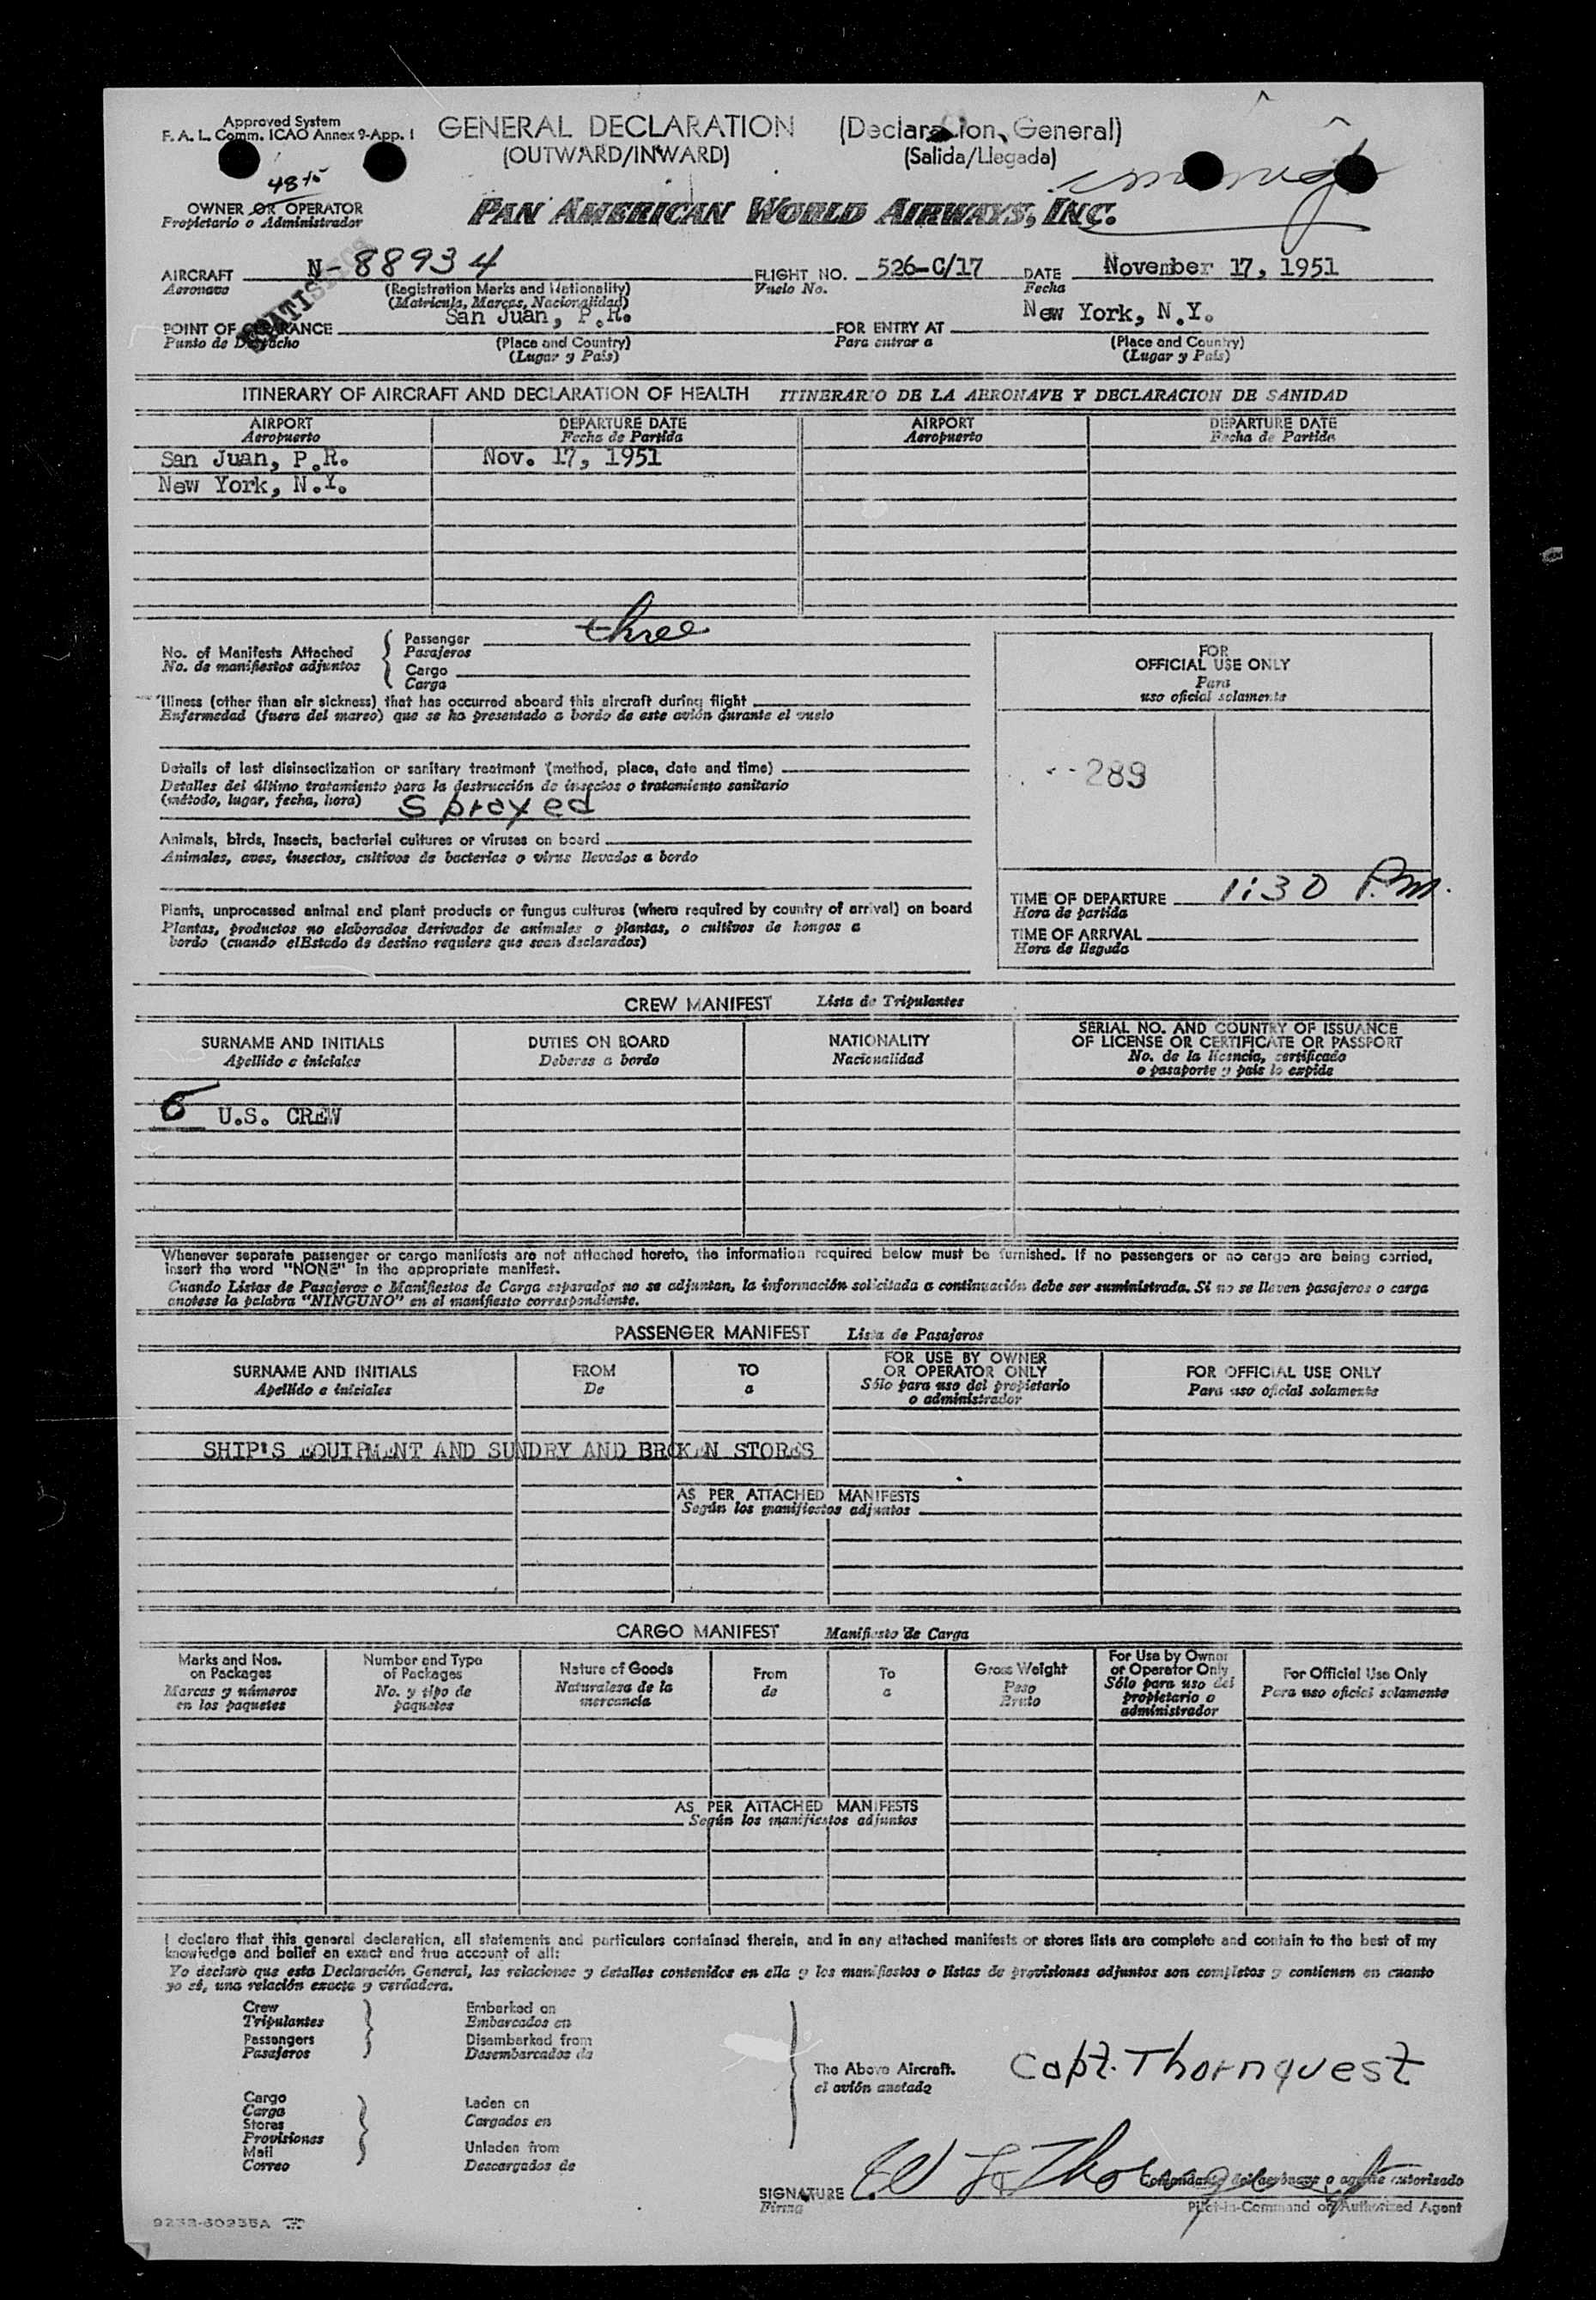 Approved System
F. A. L. Comm. ICAO Annex 9-App. I
GENERAL DECLARATION (Declaración General)
(OUTWARD/INWARD) (Salida/Llegada)
OWNER OR OPERATOR
Propietario o Administrador
PAN AMERICAN WORLD AIRWAYS, INC.
AIRCRAFT N-88934 FLIGHT NO. 526-C/17 DATE November 17, 1951
Aeronave (Registration Marks and Nationality) Vuelo No. Fecha
(Matricula, Marcas, Nacionalidad)
San Juan, P.R. New York, N.Y.
POINT OF CLEARANCE FOR ENTRY AT
Punto de Despacho (Place and Country) Para entrar a (Place and Country)
(Lugar y País) (Lugar y País)
ITINERARY OF AIRCRAFT AND DECLARATION OF HEALTH ITINERARIO DE LA AERONAVE Y DECLARACION DE SANIDAD
AIRPORT DEPARTURE DATE AIRPORT DEPARTURE DATE
Aeropuerto Fecha de Partida Aeropuerto Fecha de Partida
San Juan, P.R. Nov. 17, 1951
New York, N.Y.
No. of Manifests Attached
No. de manifiestos adjuntos
Passenger three
Pasajeros
Cargo
Carga
Illness (other than air sickness) that has occurred aboard this aircraft during flight
Enfermedad (fuera del mareo) que se ha presentado a bordo de este avión durante el vuelo
Details of last disinsectization or sanitary treatment (method, place, date and time)
Detalles del último tratamiento para la destrucción de insectos o tratamiento sanitario
(método, lugar, fecha, hora) Sprayed
Animals, birds, insects, bacterial cultures or viruses on board
Animales, aves, insectos, cultivos de bacterias o virus llevados a bordo
Plants, unprocessed animal and plant products or fungus cultures (where required by country of arrival) on board
Plantas, productos no elaborados derivados de animales o plantas, o cultivos de hongos a
bordo (cuando elEstado de destino requiera que sean declarados)
FOR
OFFICIAL USE ONLY
Para
uso oficial solamente
289
TIME OF DEPARTURE 1:30 P.m.
Hora de partida
TIME OF ARRIVAL
Hora de llegada
CREW MANIFEST Lista de Tripulantes
SURNAME AND INITIALS DUTIES ON BOARD NATIONALITY SERIAL NO. AND COUNTRY OF ISSUANCE
OF LICENSE OR CERTIFICATE OR PASSPORT
Apellido e iniciales Deberes a bordo Nacionalidad No. de la licencia, certificado
o pasaporte y país lo expide
6 U.S. CREW
Whenever separate passenger or cargo manifests are not attached hereto, the information required below must be furnished. If no passengers or no cargo are being carried,
insert the word "NONE" in the appropriate manifest.
Cuando Listas de Pasajeros o Manifiestos de Carga separados no se adjuntan, la información solicitada a continuación debe ser suministrada. Si no se lleven pasajeros o carga
anotese la palabra "NINGUNO" en el manifiesto correspondiente.
PASSENGER MANIFEST Lista de Pasajeros
SURNAME AND INITIALS FROM TO FOR USE BY OWNER
OR OPERATOR ONLY FOR OFFICIAL USE ONLY
Apellido e iniciales De a Sólo para uso del propietario
o administrador Para uso oficial solamente
SHIP'S EQUIPMENT AND SUNDRY AND BROKEN STORES
AS PER ATTACHED MANIFESTS
Según los manifiestos adjuntos
CARGO MANIFEST Manifiesto de Carga
Marks and Nos.
on Packages
Marcas y números
en los paquetes
Number and Type
of Packages
No. y tipo de
paquetes
Nature of Goods
Naturaleza de la
mercancía
From
de
To
a
Gross Weight
Peso
Bruto
For Use by Owner
or Operator Only
Sólo para uso del
propietario o
administrador
For Official Use Only
Para uso oficial solamente
AS PER ATTACHED MANIFESTS
Según los manifiestos adjuntos
I declare that this general declaration, all statements and particulars contained therein, and in any attached manifests or stores lists are complete and contain to the best of my
knowledge and belief an exact and true account of all:
Yo declaro que esta Declaración General, las relaciones y detalles contenidos en ella y los manifiestos o listas de provisiones adjuntos son completos y contienen en cuanto
yo sé, una relación exacta y verdadera.
Crew
Tripulantes
Passengers
Pasajeros
Embarked on
Embarcados en
Disembarked from
Desembarcados de
Cargo
Carga
Stores
Provisiones
Mail
Correo
Laden on
Cargados en
Unladen from
Descargados de
The Above Aircraft.
el avión anotado
Capt. Thornquest
Comandante del aeronave o agente autorizado
SIGNATURE
Firma
Pilot-in-Command or Authorized Agent